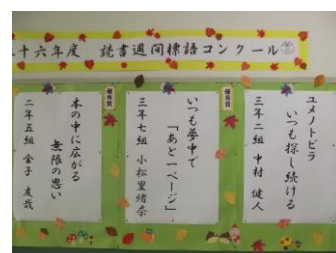 十六年度 読書週間標語コンクール
ユメノトビラ
いつも探し続ける
三年二組 中村 健人
優秀賞
いつも夢中で
「あと一ページ」
三年七組 小松里緒奈
優秀賞
本の中に広がる
無限の思い
二年五組 金子 友哉